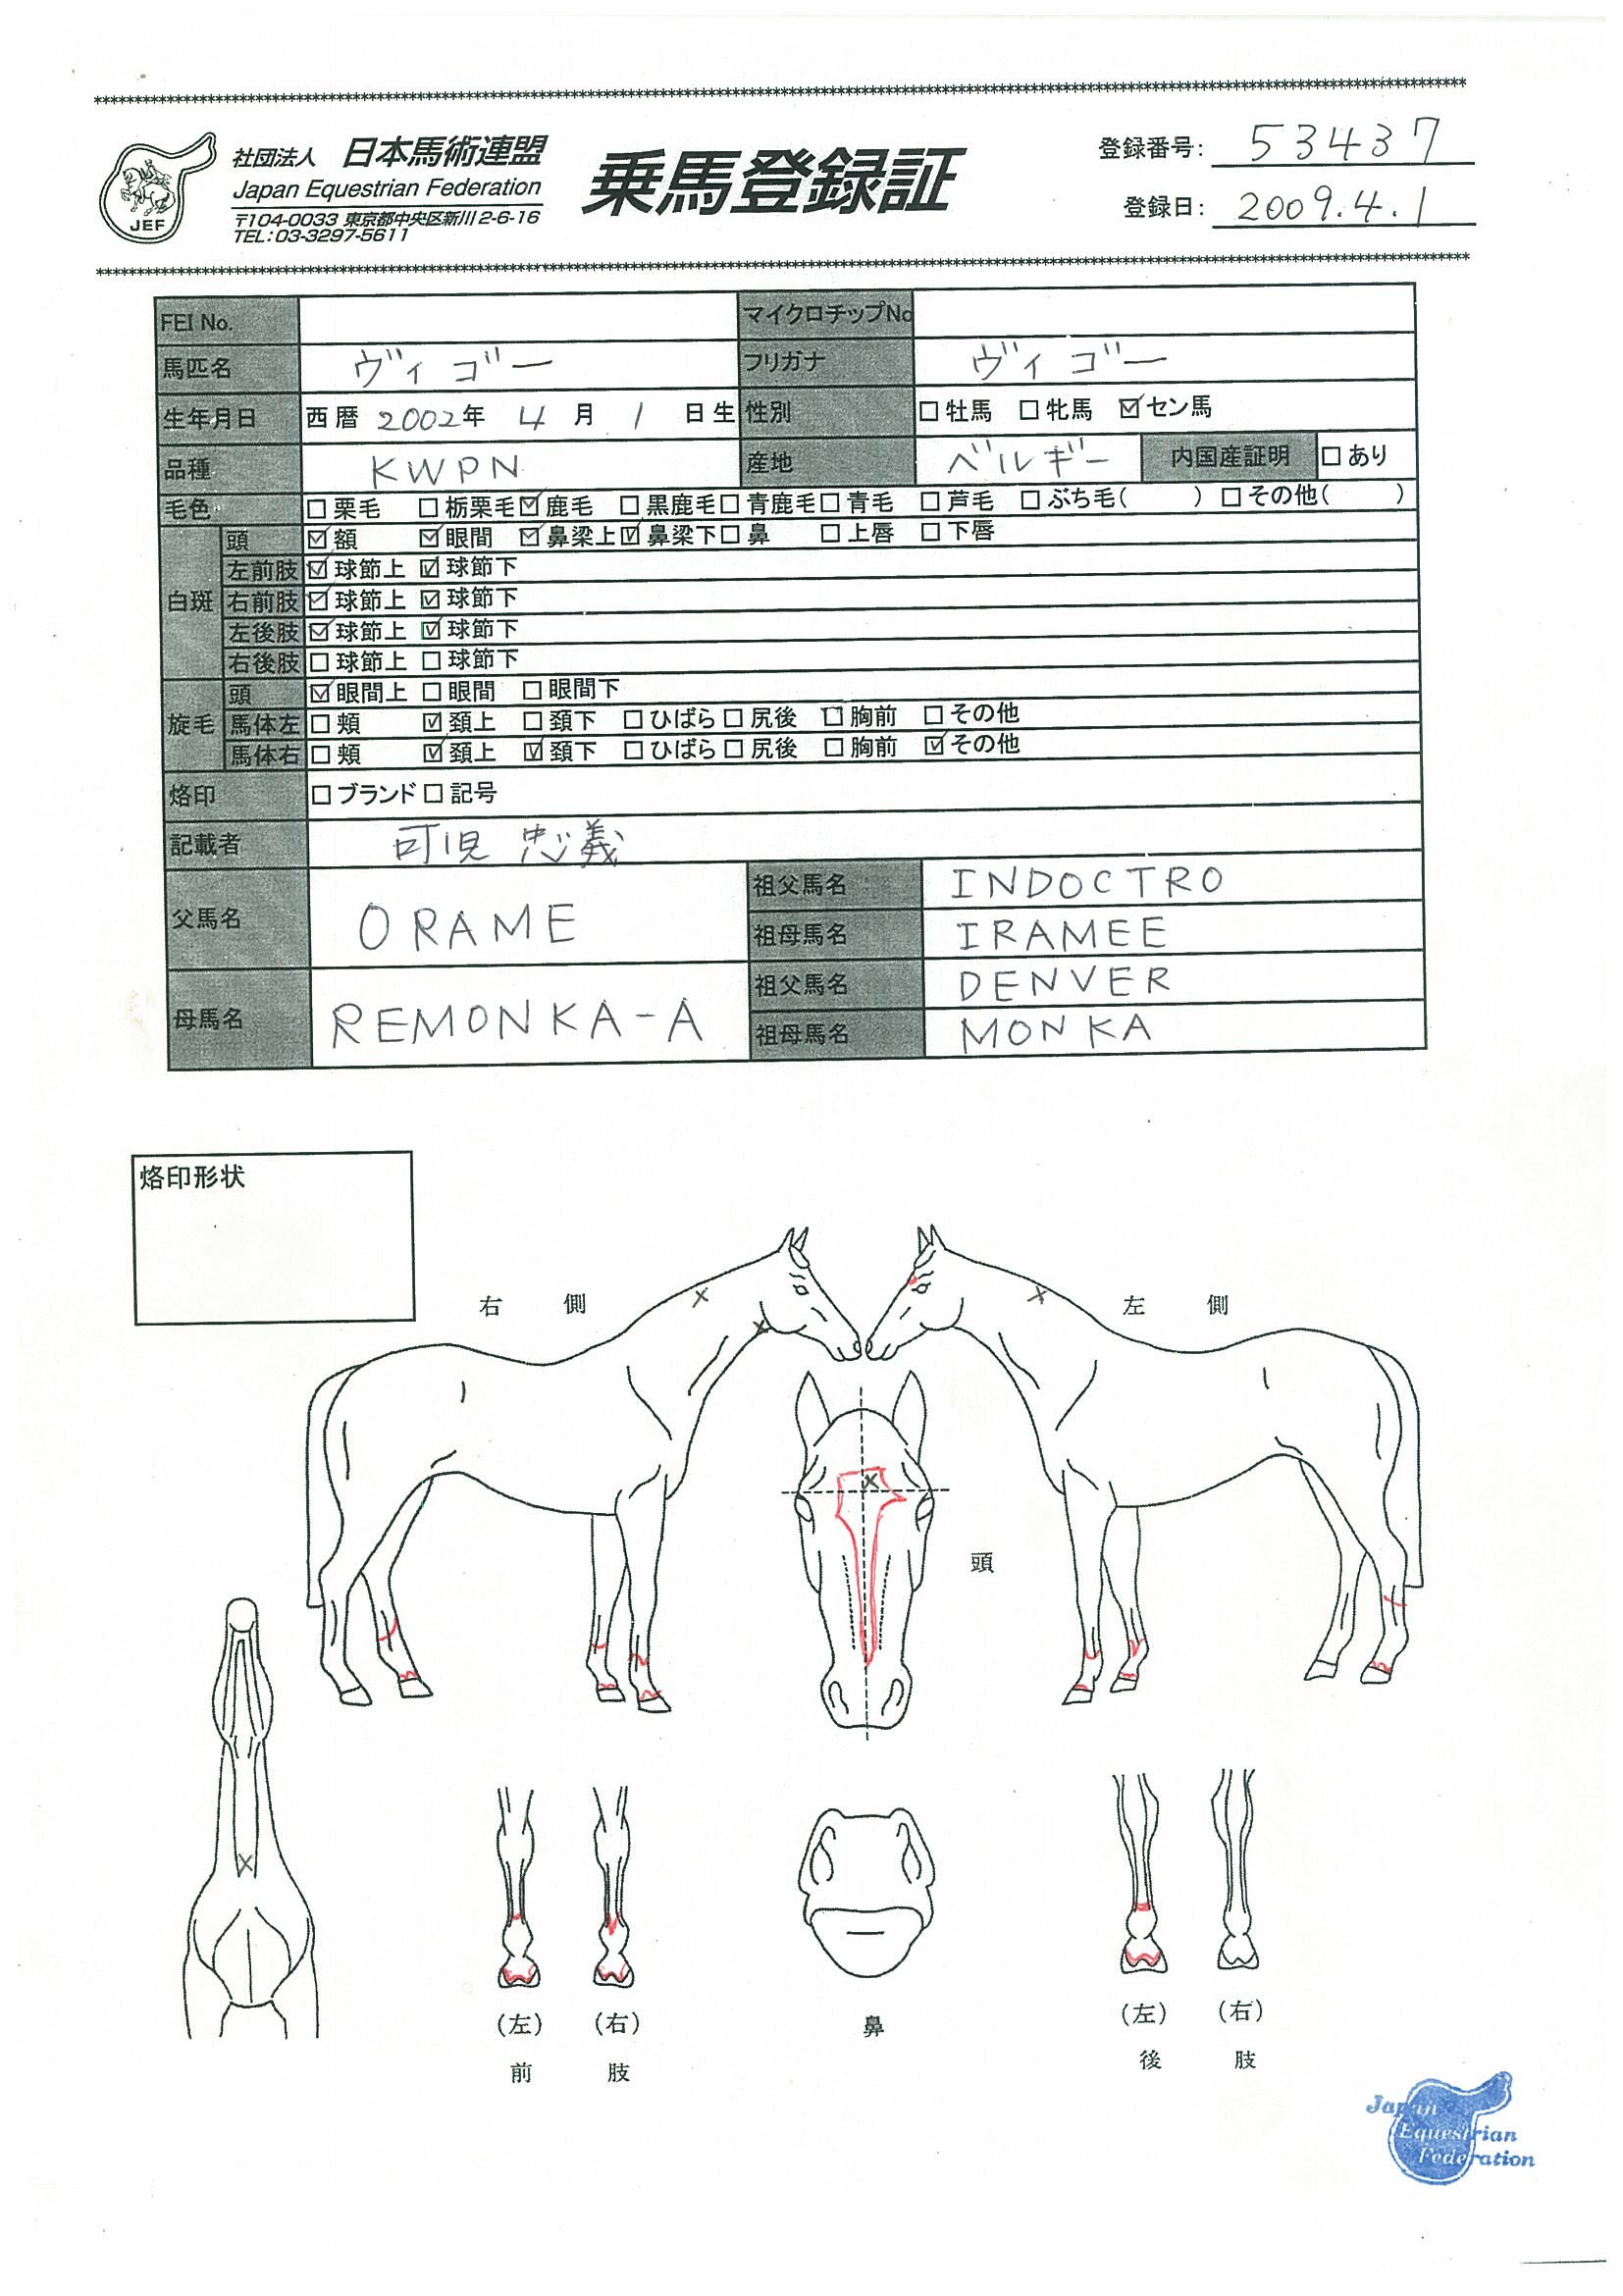 ************************************************************
社団法人 日本馬術連盟
Japan Equestrian Federation
〒104-0033 東京都中央区新川2-6-16
TEL:03-3297-5611
JEF
乗馬登録証
登録番号: 53437
登録日: 2009.4.1
************************************************************
FEI No. マイクロチップNo
馬匹名 ヴィゴー フリガナ ヴィゴー
生年月日 西暦 2002年 4月 1日生 性別 □牡馬 □牝馬 ☑セン馬
品種 KWPN 産地 ベルギー 内国産証明 □あり
毛色 □栗毛 □栃栗毛 ☑鹿毛 □黒鹿毛 □青鹿毛 □青毛 □芦毛 □ぶち毛( ) □その他( )
白斑 頭 ☑額 ☑眼間 ☑鼻梁上 ☑鼻梁下 □鼻 □上唇 □下唇
左前肢 ☑球節上 ☑球節下
右前肢 ☑球節上 ☑球節下
左後肢 ☑球節上 ☑球節下
右後肢 □球節上 □球節下
旋毛 頭 ☑眼間上 □眼間 □眼間下
馬体左 □頬 ☑頚上 □頚下 □ひばら □尻後 □胸前 □その他
馬体右 □頬 ☑頚上 ☑頚下 □ひばら □尻後 □胸前 ☑その他
烙印 □ブランド □記号
記載者 可児 忠義
父馬名 ORAME 祖父馬名 INDOCTRO
祖母馬名 IRAMEE
母馬名 REMONKA-A 祖父馬名 DENVER
祖母馬名 MONKA
烙印形状
右側 左側
頭
(左) (右) 鼻 (左) (右)
前肢 後肢
Japan
Equestrian
Federation